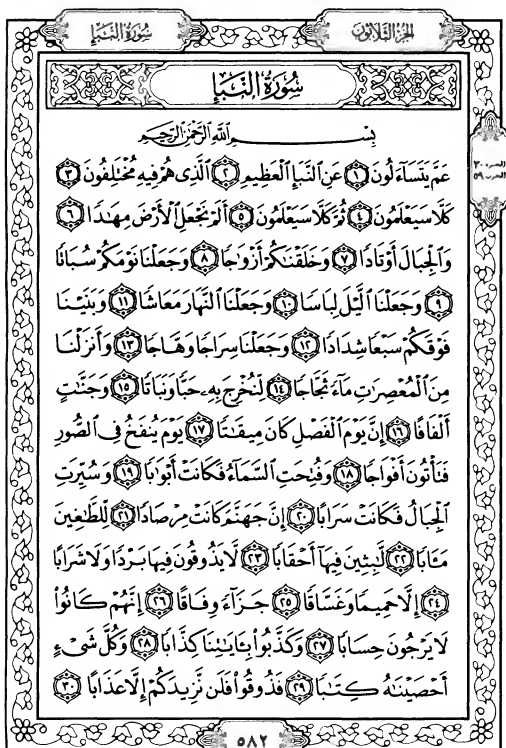 سُورَةُ النَّبَإِ
الجُزْءُ الثَّلَاثُونَ
سُورَةُ النَّبَإِ
بِسْمِ اللَّهِ الرَّحْمَٰنِ الرَّحِيمِ
الجزء ٣٠
الحزب ٥٩
عَمَّ يَتَسَآءَلُونَ ١ عَنِ النَّبَإِ الْعَظِيمِ ٢ الَّذِى هُمْ فِيهِ مُخْتَلِفُونَ ٣
كَلَّا سَيَعْلَمُونَ ٤ ثُمَّ كَلَّا سَيَعْلَمُونَ ٥ أَلَمْ نَجْعَلِ الْأَرْضَ مِهَٰدًا ٦
وَالْجِبَالَ أَوْتَادًا ٧ وَخَلَقْنَٰكُمْ أَزْوَٰجًا ٨ وَجَعَلْنَا نَوْمَكُمْ سُبَاتًا
٩ وَجَعَلْنَا الَّيْلَ لِبَاسًا ١٠ وَجَعَلْنَا النَّهَارَ مَعَاشًا ١١ وَبَنَيْنَا
فَوْقَكُمْ سَبْعًا شِدَادًا ١٢ وَجَعَلْنَا سِرَاجًا وَهَّاجًا ١٣ وَأَنزَلْنَا
مِنَ الْمُعْصِرَٰتِ مَآءً ثَجَّاجًا ١٤ لِّنُخْرِجَ بِهِۦ حَبًّا وَنَبَاتًا ١٥ وَجَنَّٰتٍ
أَلْفَافًا ١٦ إِنَّ يَوْمَ الْفَصْلِ كَانَ مِيقَٰتًا ١٧ يَوْمَ يُنفَخُ فِى الصُّورِ
فَتَأْتُونَ أَفْوَاجًا ١٨ وَفُتِحَتِ السَّمَآءُ فَكَانَتْ أَبْوَٰبًا ١٩ وَسُيِّرَتِ
الْجِبَالُ فَكَانَتْ سَرَابًا ٢٠ إِنَّ جَهَنَّمَ كَانَتْ مِرْصَادًا ٢١ لِّلطَّٰغِينَ
مَـَٔابًا ٢٢ لَّٰبِثِينَ فِيهَآ أَحْقَابًا ٢٣ لَّا يَذُوقُونَ فِيهَا بَرْدًا وَلَا شَرَابًا
٢٤ إِلَّا حَمِيمًا وَغَسَّاقًا ٢٥ جَزَآءً وِفَاقًا ٢٦ إِنَّهُمْ كَانُوا۟
لَا يَرْجُونَ حِسَابًا ٢٧ وَكَذَّبُوا۟ بِـَٔايَٰتِنَا كِذَّابًا ٢٨ وَكُلَّ شَىْءٍ
أَحْصَيْنَٰهُ كِتَٰبًا ٢٩ فَذُوقُوا۟ فَلَن نَّزِيدَكُمْ إِلَّا عَذَابًا ٣٠
٥٨٢